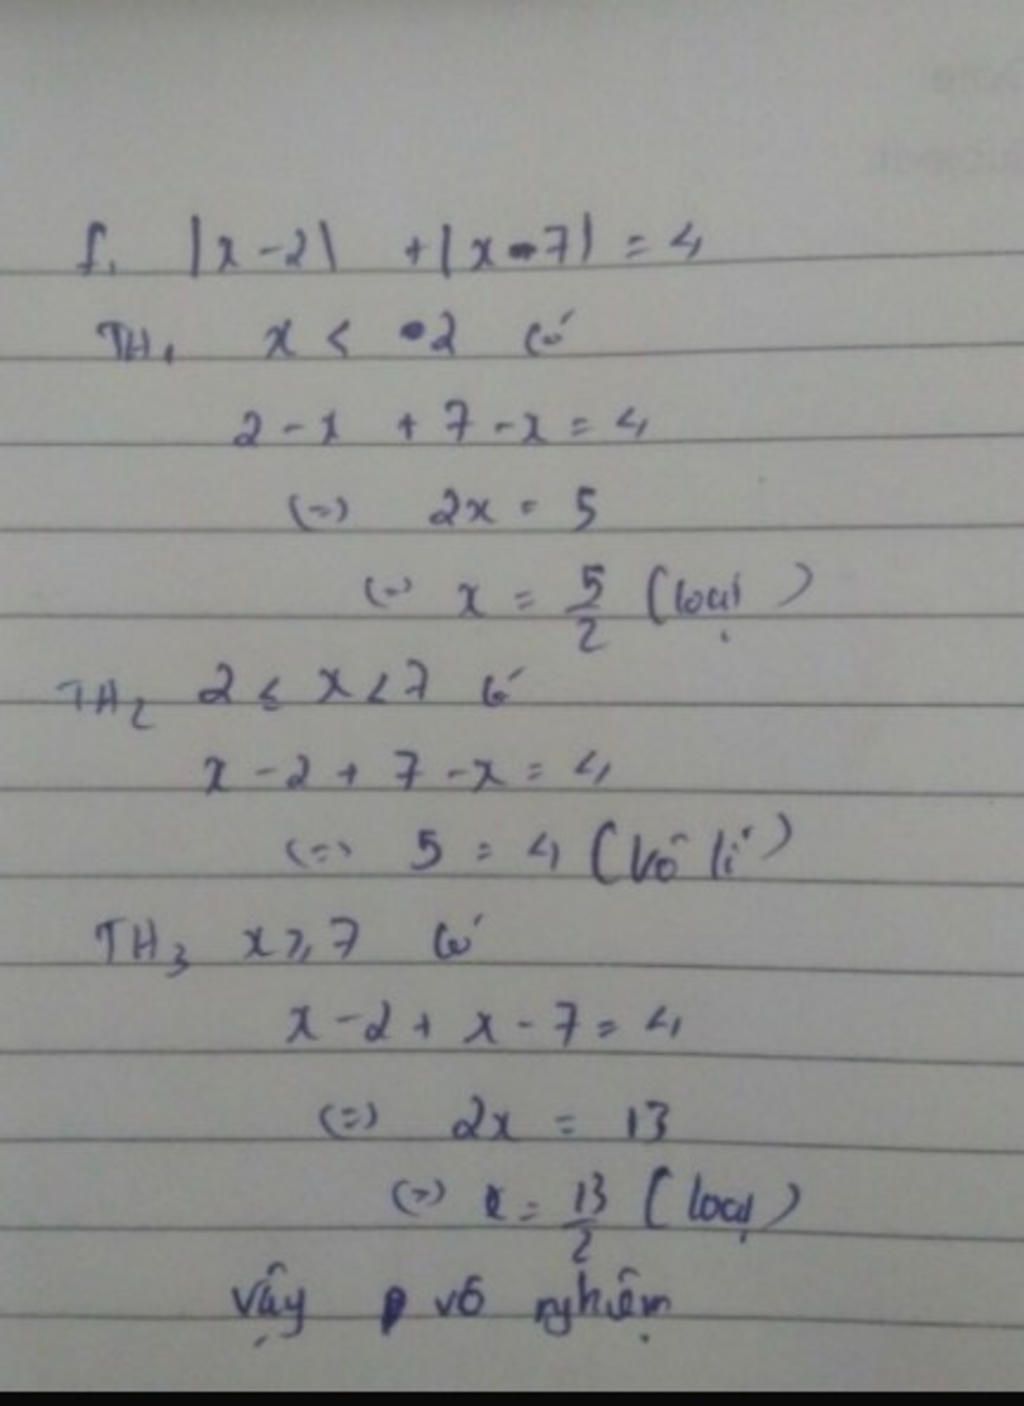 f. |x - 2| + |x - 7| = 4
TH1 x < 2 có
2 - x + 7 - x = 4
(=) 2x = 5
(=) x = 5/2 (loại)
TH2 2 ≤ x < 7 có
x - 2 + 7 - x = 4
(=) 5 = 4 (vô lí)
TH3 x ≥ 7 có
x - 2 + x - 7 = 4
(=) 2x = 13
(=) x = 13/2 (loại)
Vậy vô nghiệm